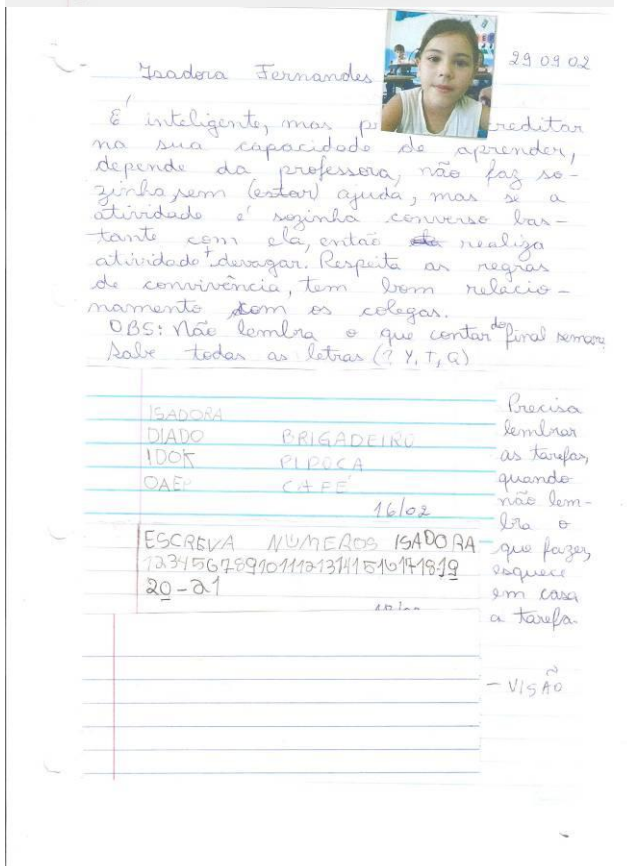 Isadora Fernandes 29 09 02
É inteligente, mas creditar
na sua capacidade de aprender,
depende da professora, não faz so-
zinha, sem (estar) ajuda, mas se a
atividade é sozinha converso bas-
tante com ela, então realiza
atividade + devagar. Respeita as regras
de convivência, tem bom relacio-
namento com os colegas.
OBS: Não lembra o que contar do final semana
Sabe todas as letras (? Y, T, G)
ISADORA
DIADO BRIGADEIRO
IDOK PIPOCA
OAEP CAFÉ
16/02
ESCREVA NÚMEROS ISADORA
12345678910111213141516171819
20-21
Precisa
lembrar
as tarefas,
quando
não lem-
bra o
que fazer,
esquece
em casa
a tarefa.
- VISÃO